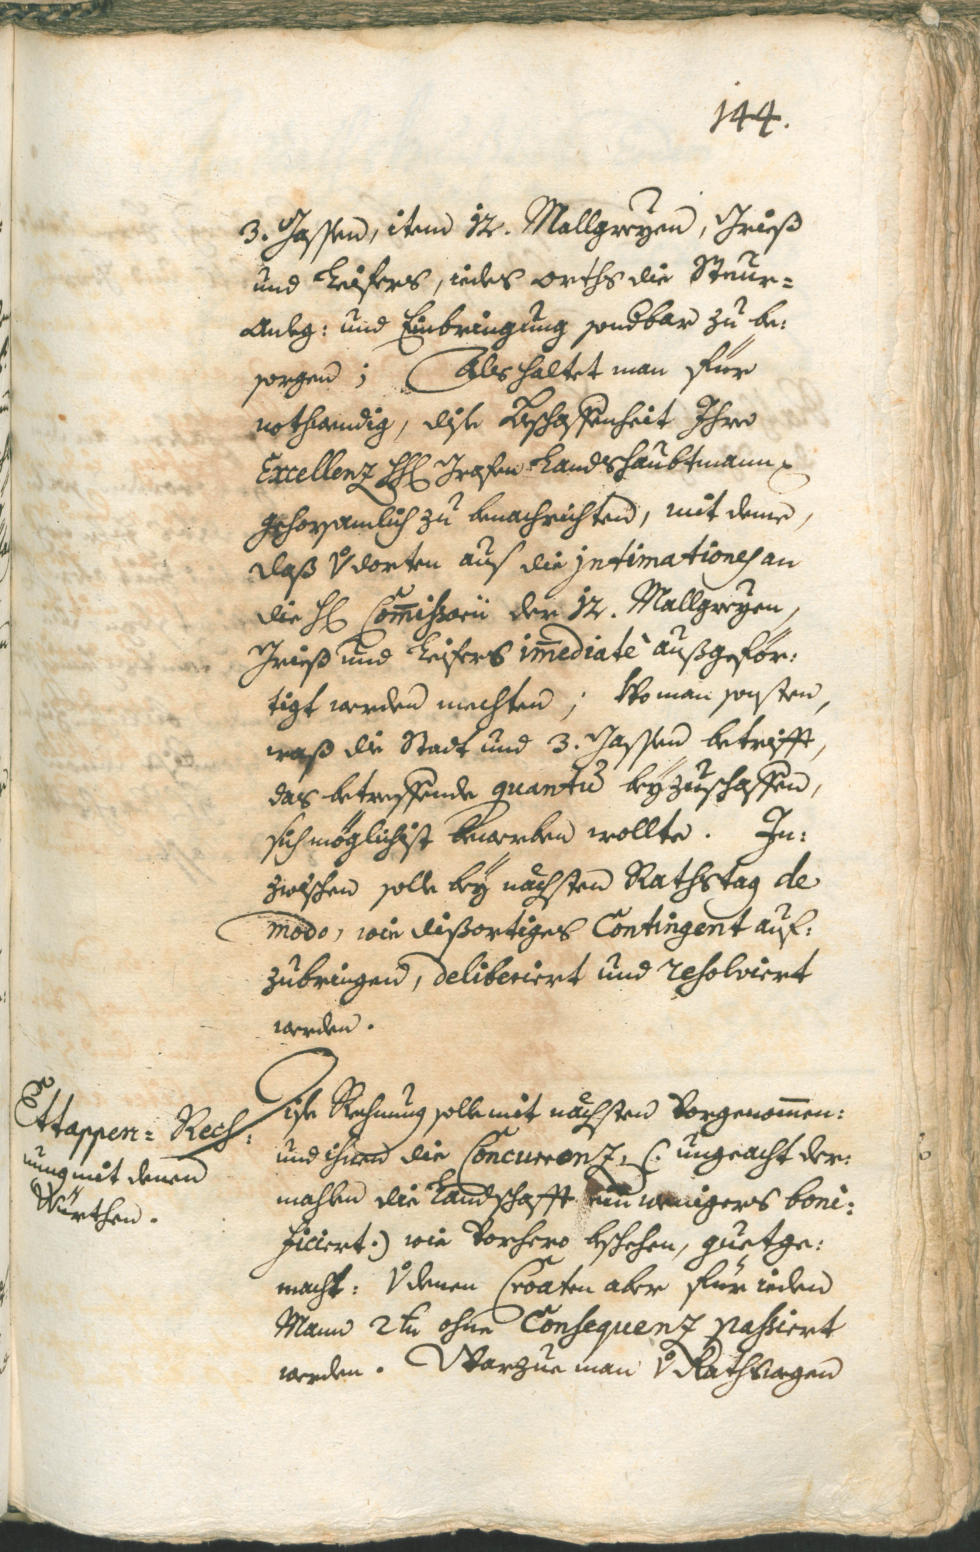 144.
3. Gassen, item 12. Mallgreyen, Grieß
und Leifers, iedes orths die Steur=
Anleg: und Einbringung sondbar zu be:
sorgen; Als haltet man für
nothwendig, dise Beschaffenheit Ihro
Excellenz Grafen Landshaubtmann
gehorsamlich zu benachrichten, mit deme,
daß v dorten aus die jntimationes an
die H Commissarii der 12. Mallgreyen,
Grieß und Leifers immediatè außgeför:
tigt werden mechten; Wo man sonsten,
waß die Stadt und 3. Gassen betrifft,
das betreffende quantum beyzuschaffen,
sich möglichist bewerben wollte. In:
zwischen solle bey nächsten Rathstag de
modo, wie dißortiges Contingent auf:
zubringen, deliberiert und resolviert
werden.
Ettappen= Rech:
nung mit denen
Würthen.
Dise Rechnung solle mit nächsten Vorgenommen:
und ihnen die Concurrenz, (: ungeacht der:
mahlen die Landschafft ein wenigers boni:
ficiert:) wie Vorhero beschehen, guetge:
macht: v denen Croaten aber für ieden
Mann 2 kr ohne Consequenz passiert
werden. Warzue man v Rathswegen